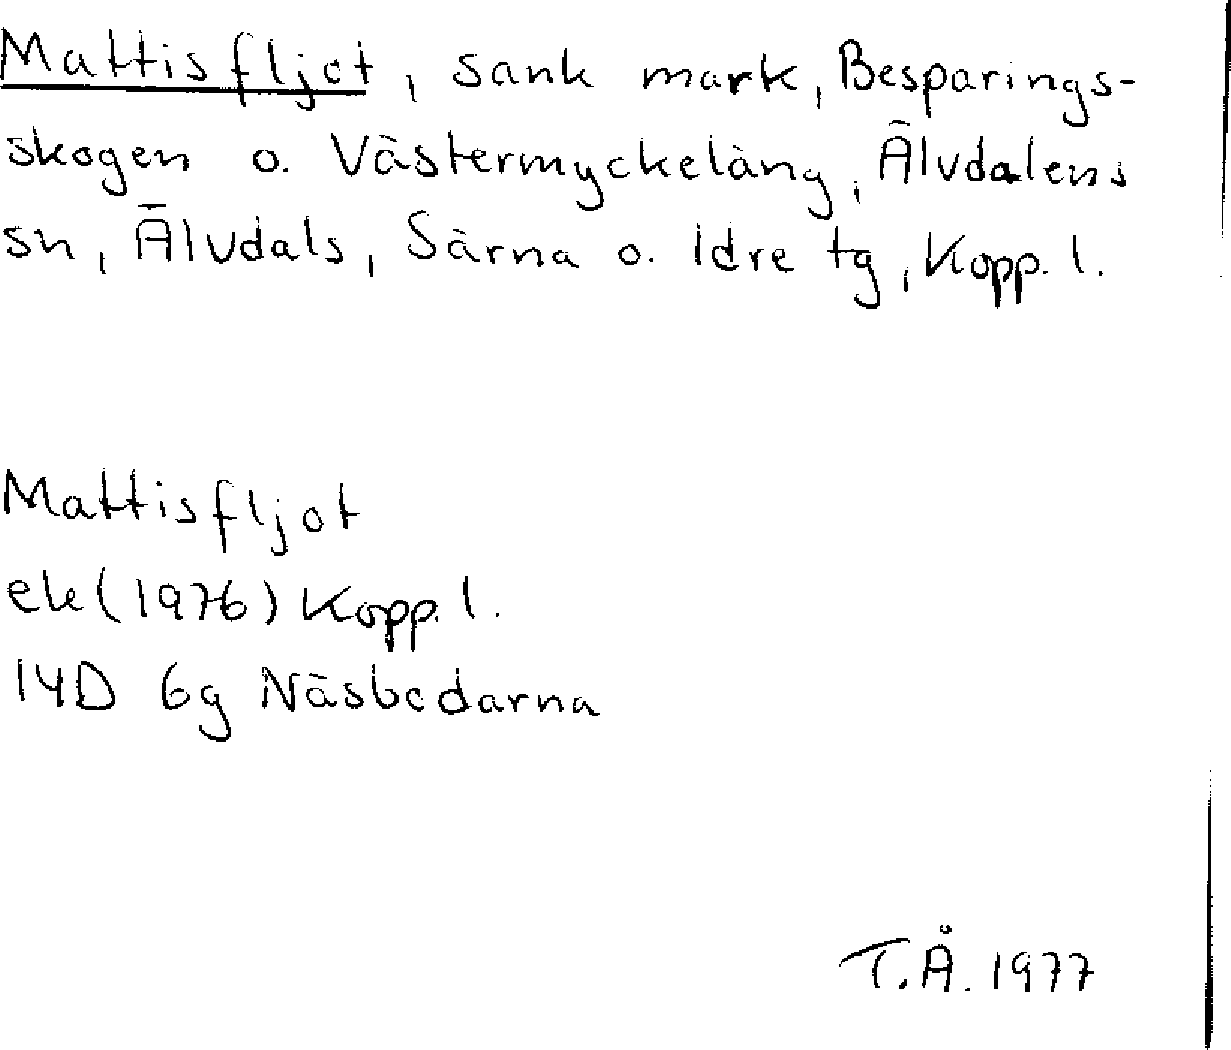 Mattisfljot, sank mark, Besparings-
skogen o. Västermyckeläng, Älvdalens
sn, Älvdals, Särna o. Idre tg, Kopp. l.
Mattisfljot
ek (1976) Kopp. l.
14D 6g Näsbodarna
T.Å. 1977